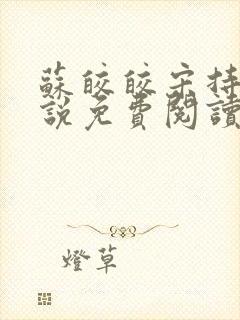 蘇皎皎宋持
說免費閱讀
燈草